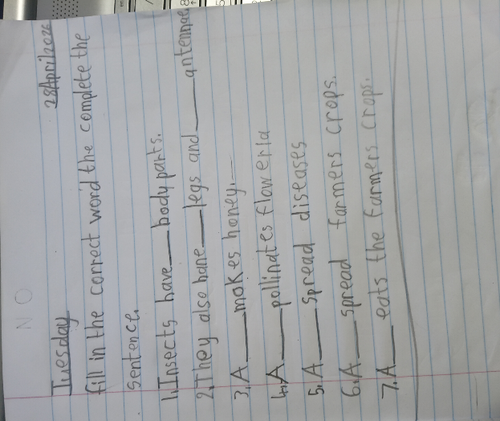 NO
Tuesday 28April2026
fill in the correct word the complete the
sentence.
1. Insects have ___ body parts.
2. They also hane ___ legs and ___ antennae.
3. A ___ makes honey.
4. A ___ pollinates floweria
5. A ___ spread diseases
6. A ___ spread farmers crops.
7. A ___ eats the farmers crops.